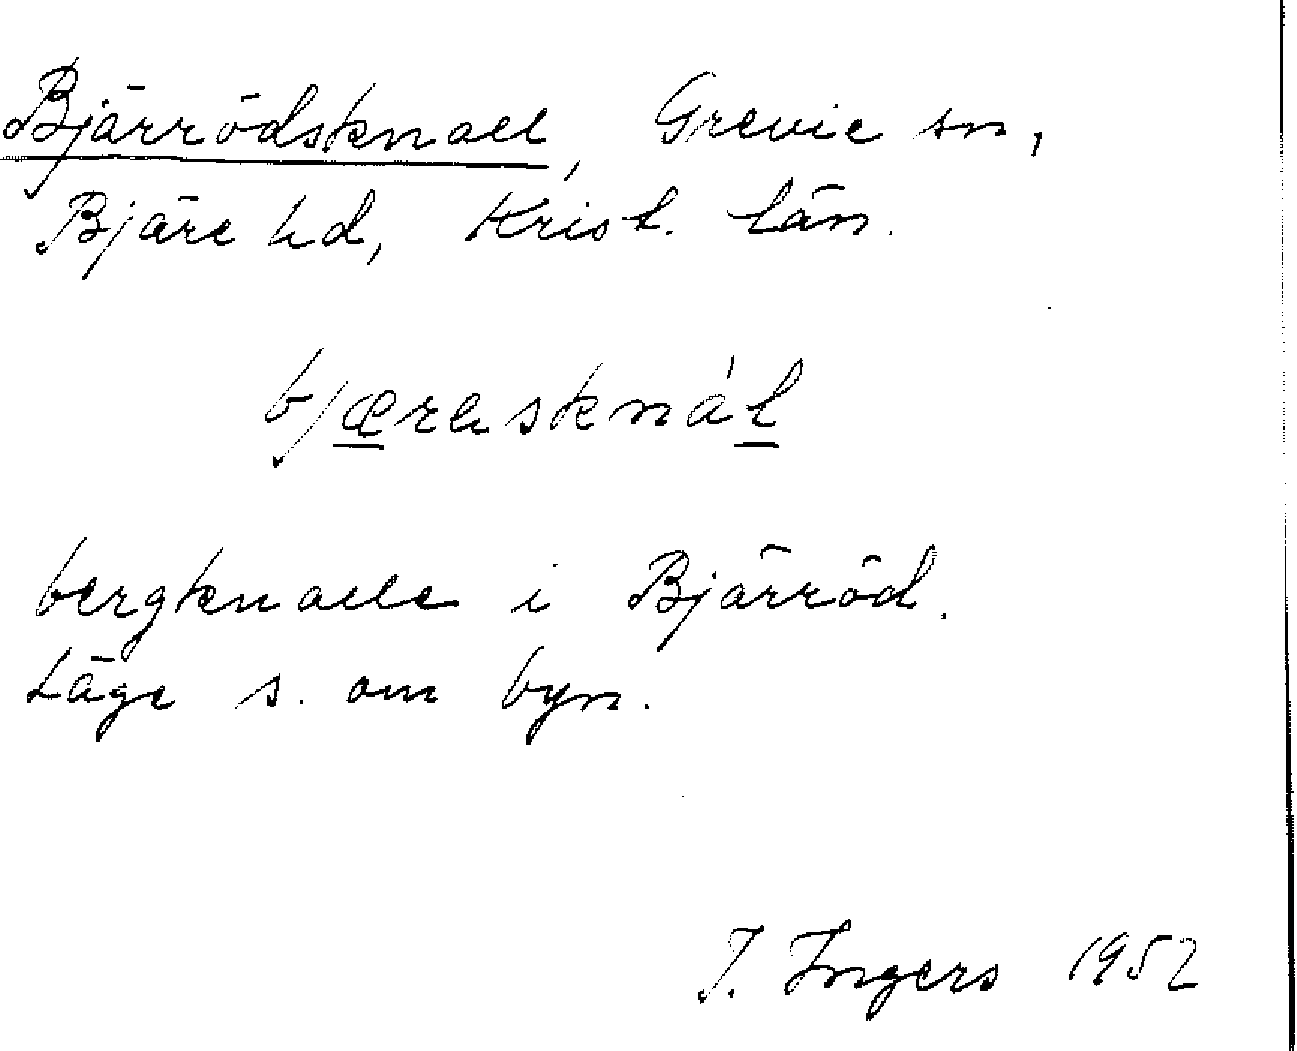 Bjärrödsknall, Grevie sn,
Bjäre hd, Krist. län.
bjæresknál
bergknalle i Bjärröd.
Läge s. om byn.
I. Ingers 1952